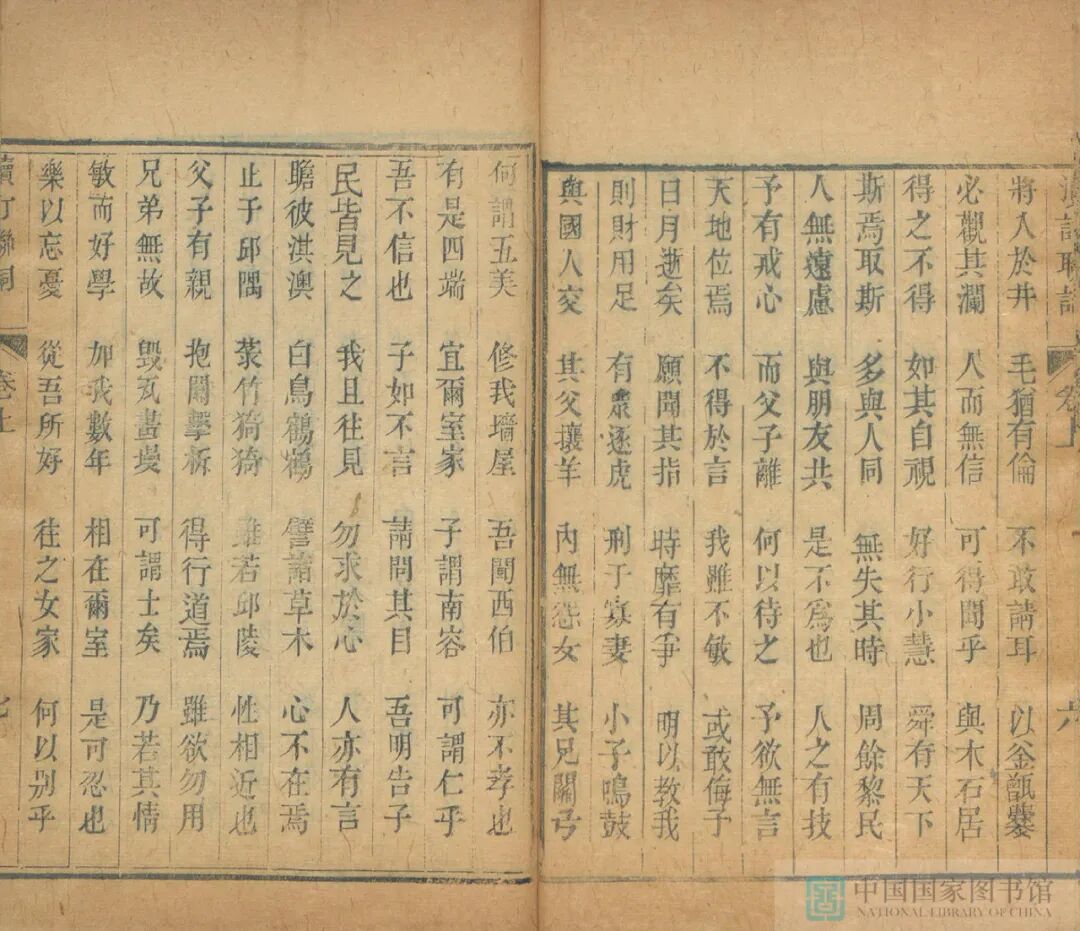 訂聯 卷上 六
將入於井 毛猶有倫 不敢請耳 以釜甑爨
必觀其瀾 人而無信 可得聞乎 與木石居
得之不得 如其自視 好行小慧 舜有天下
斯焉取斯 多與人同 無失其時 周餘黎民
人無遠慮 與朋友共 是不爲也 人之有技
予有戒心 而父子離 何以待之 予欲無言
天地位焉 不得於言 我雖不敏 或敢侮予
日月逝矣 願聞其指 時靡有爭 明以教我
則財用足 有衆逐虎 刑于寡妻 小子鳴鼓
與國人交 其父攘羊 內無怨女 其兄關弓
何謂五美 修我墻屋 吾聞西伯 亦不孝也
有是四端 宜爾室家 子謂南容 可謂仁乎
吾不信也 子如不言 請問其目 吾明告子
民皆見之 我且往見 勿求於心 人亦有言
瞻彼淇澳 白鳥鶴鶴 譬諸草木 心不在焉
止于邱隅 菉竹猗猗 雖若邱陵 性相近也
父子有親 抱關擊柝 得行道焉 雖欲勿用
兄弟無故 毀瓦畫墁 可謂士矣 乃若其情
敏而好學 加我數年 相在爾室 是可忍也
樂以忘憂 從吾所好 往之女家 何以别乎
續訂聯 卷上 七
中国国家图书馆
NATIONAL LIBRARY OF CHINA